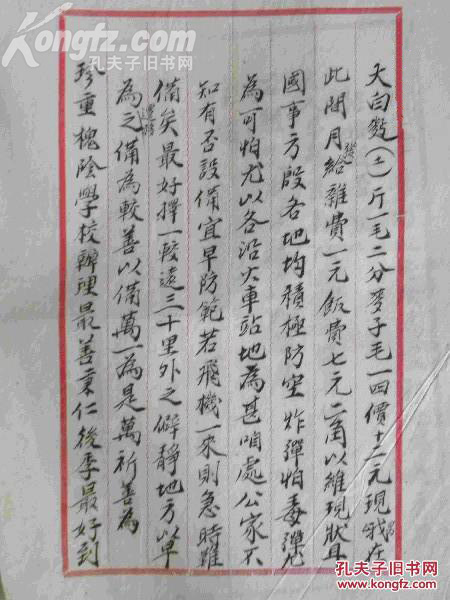 大白麵(二)斤一毛二分麥子毛一四價十二元現我在
此間月給雜費一元飯費七元二角以維現狀耳
國事方殷各地均積極防空炸彈怕毒彈
為可怕尤以各沿火車站地為甚咱處公家不
知有否設備宜早防範若飛機一來則急時難
備矣最好擇一較遠三十里外之僻靜地方以早
為之備為較善以備萬一為是萬祈善為
珍重槐蔭學校辦理最善秉仁後季最好到
Kongfz.com
孔夫子旧书网
Kongfz.com
孔夫子旧书网